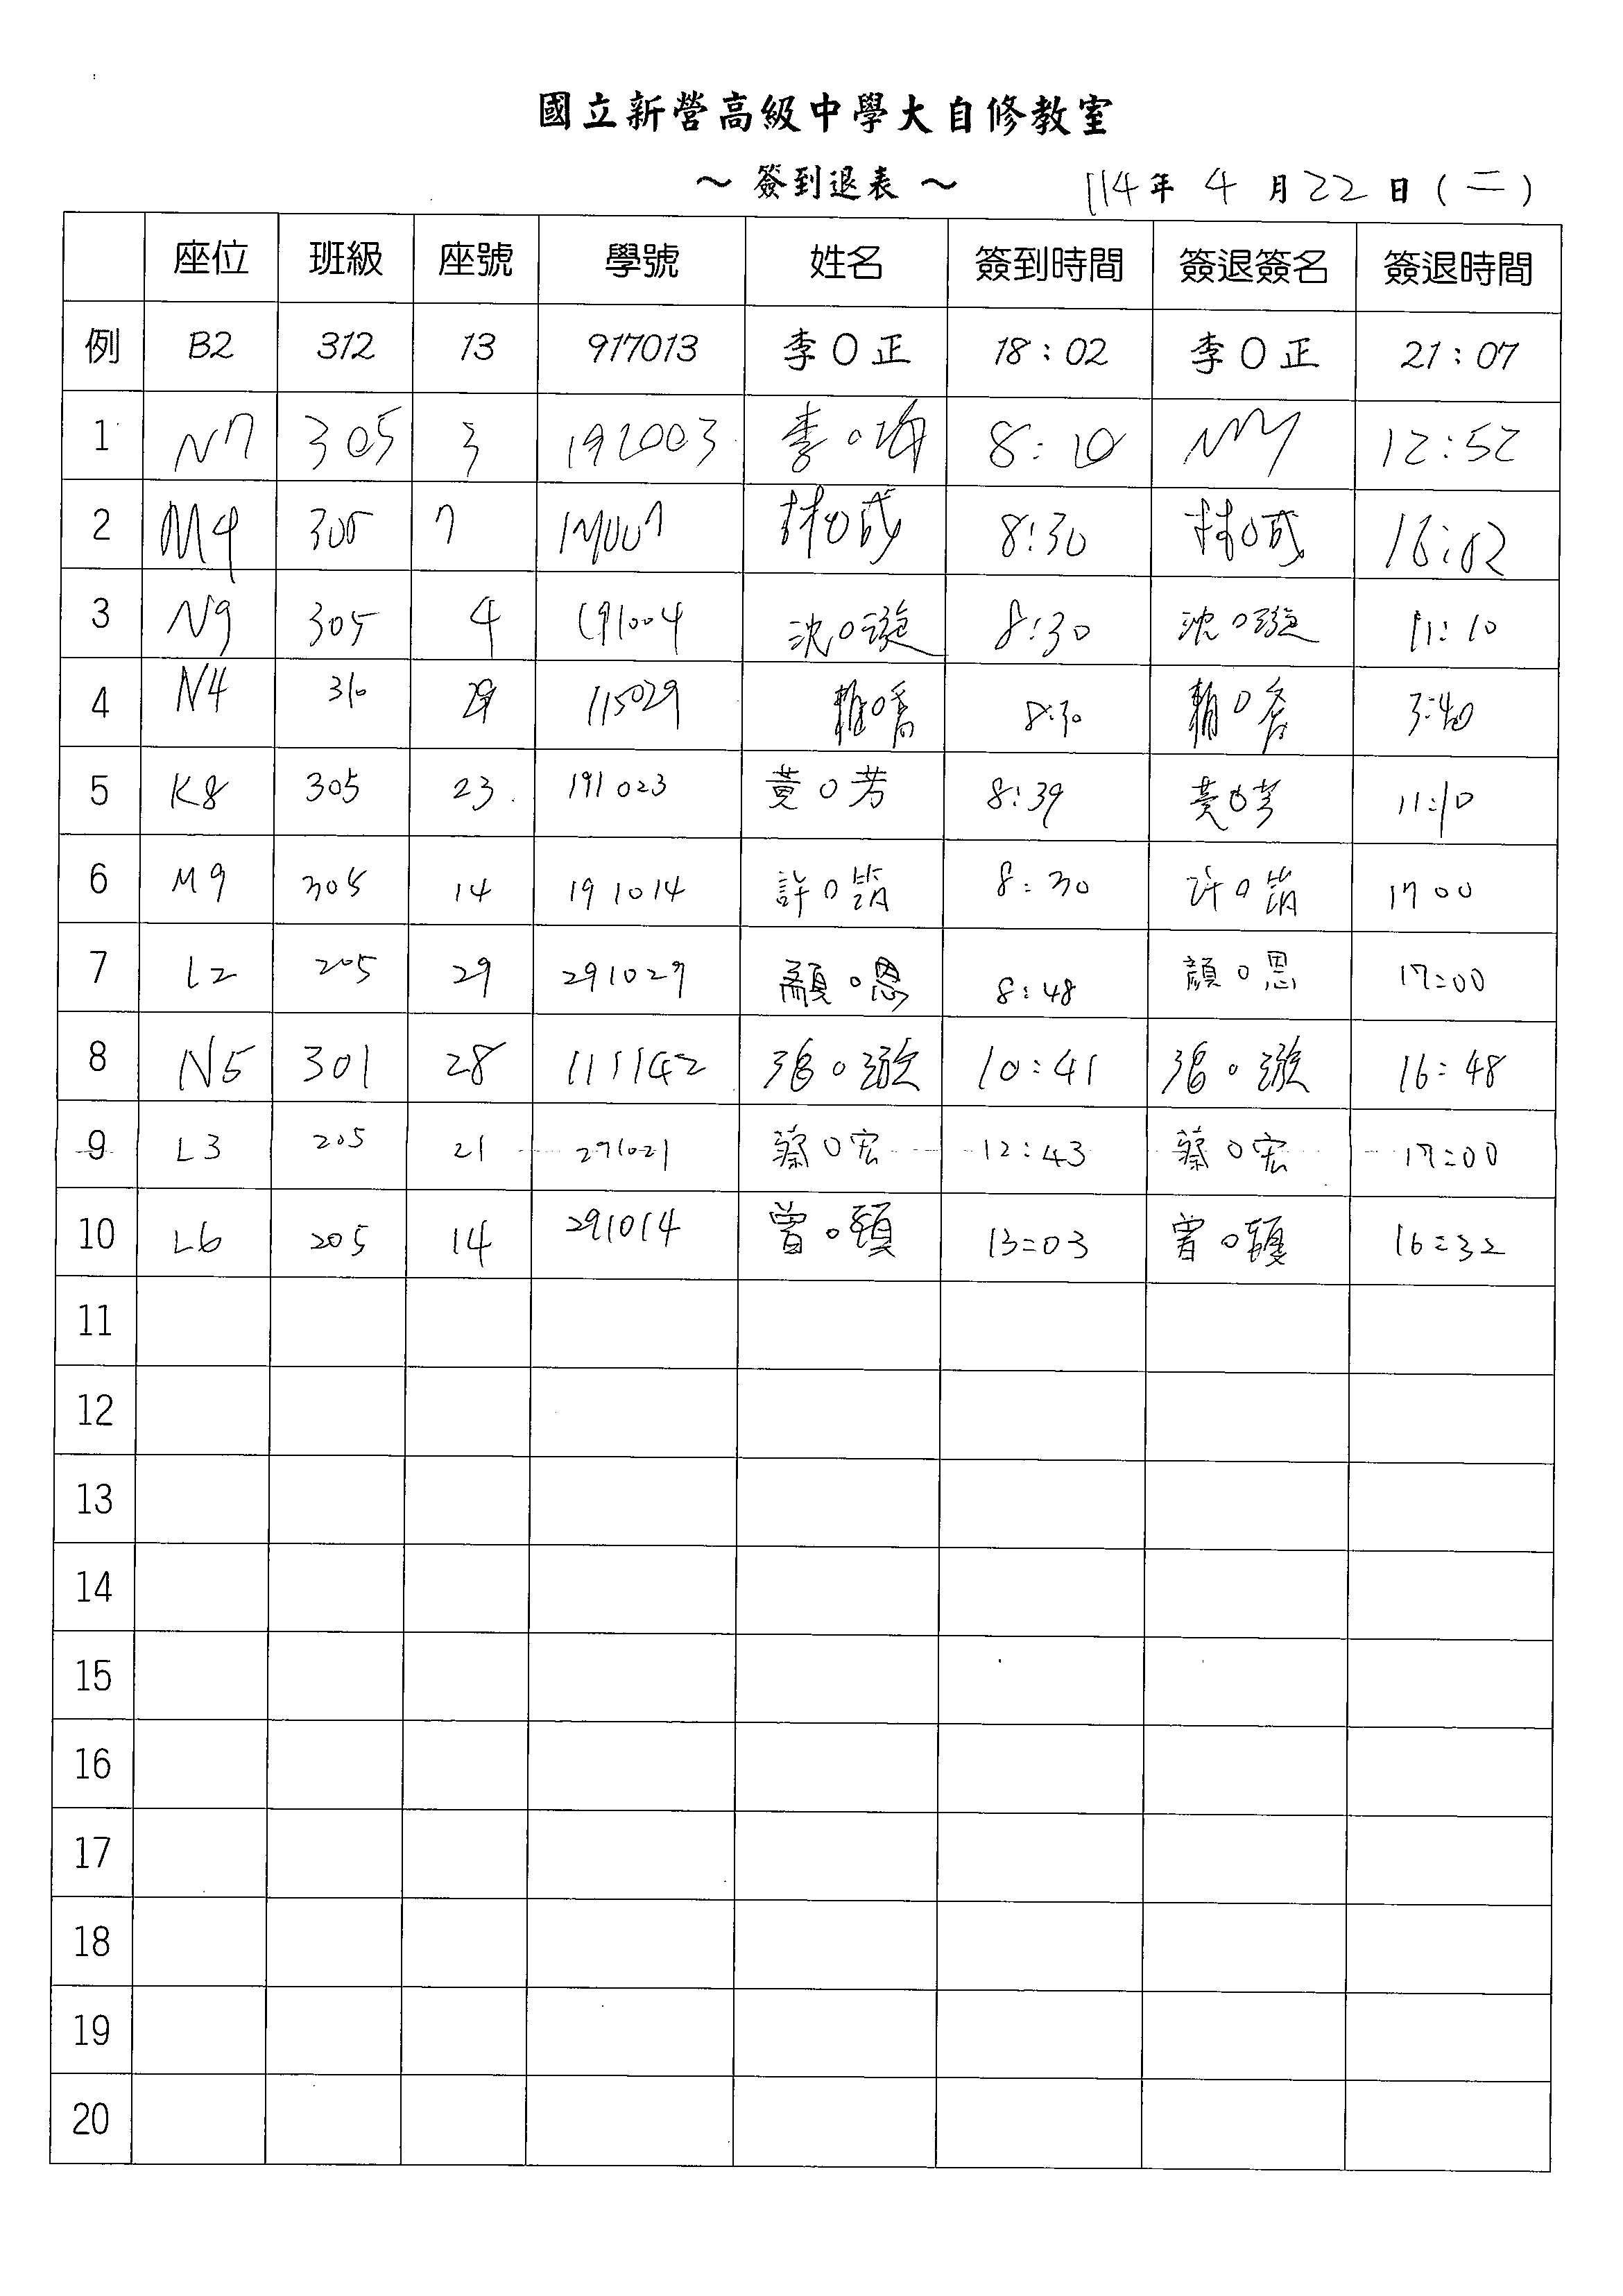 國立新營高級中學大自修教室
～ 簽到退表 ～ 114年 4 月 22 日 ( 二 )
座位 班級 座號 學號 姓名 簽到時間 簽退簽名 簽退時間
例 B2 312 13 917013 李O正 18:02 李O正 21:07
1 N7 305 3 8:10 12:52
2 M4 305 7 林O成 8:30 林O成 16:02
3 N9 305 4 191004 沈O璇 8:30 沈O璇 11:10
4 N4 310 29 115029 賴O喬 8:30 賴O喬 3:40
5 K8 305 23 191023 黃O芳 8:39 黃O芳 11:10
6 M9 305 14 191014 許O 8:30 许O 17 00
7 L2 205 29 291029 顏O恩 8:48 顏O恩 17:00
8 N5 301 28 111142 張O璇 10:41 張O璇 16:48
9 L3 205 21 291021 蔡O宏 12:43 蔡O宏 17:00
10 L6 205 14 291014 曾O 13:03 曾O 16:32
11
12
13
14
15
16
17
18
19
20